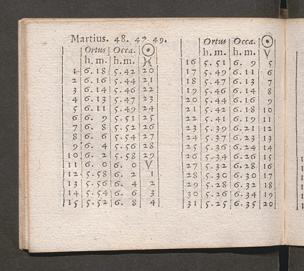 Martius. 48. 49.
Ortus Occa. ☉
h. m. h. m. ♓
1 6. 18 5. 42 20
2 6. 16 5. 44 21
3 6. 14 5. 46 22
4 6. 13 5. 47 23
5 6. 11 5. 49 24
6 6. 9 5. 51 25
7 6. 8 5. 52 26
8 6. 6 5. 54 27
9 6. 4 5. 56 28
10 6. 2 5. 58 29
11 6. 0 6. 0 V
12 5. 58 6. 2 1
13 5. 56 6. 4 2
14 5. 54 6. 6 3
15 5. 52 6. 8 4
Ortus Occa. ☉
h. m. h. m. V
16 5. 51 6. 9 5
17 5. 49 6. 11 6
18 5. 47 6. 13 7
19 5. 46 6. 14 8
20 5. 44 6. 16 9
21 5. 42 6. 18 10
22 5. 41 6. 19 11
23 5. 39 6. 21 12
24 5. 37 6. 23 13
25 5. 36 6. 24 14
26 5. 34 6. 26 15
27 5. 32 6. 28 16
28 5. 30 6. 30 17
29 5. 28 6. 32 18
30 5. 26 6. 34 19
31 5. 25 6. 35 20